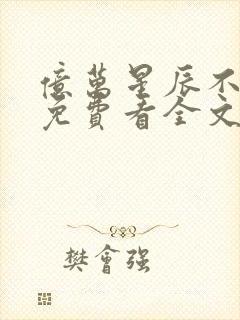 億萬星辰不
免費看全文
樊會强